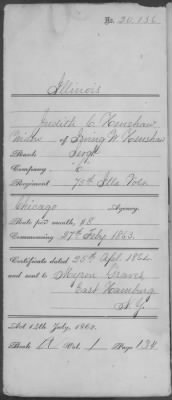 No. 20,156
Illinois
Judith C. Henshaw
Widow of Irving W. Henshaw
Rank Sergt
Company "E"
Regiment 75th Ills Vols
Chicago Agency.
Rate per month, $8
Commencing 27th Feby 1863.
Certificate dated 25th Apl. 1864
and sent to Myron Graves
East Hamburg
N.Y.
Act 14th July, 1862.
Book A Vol. 1 Page 124